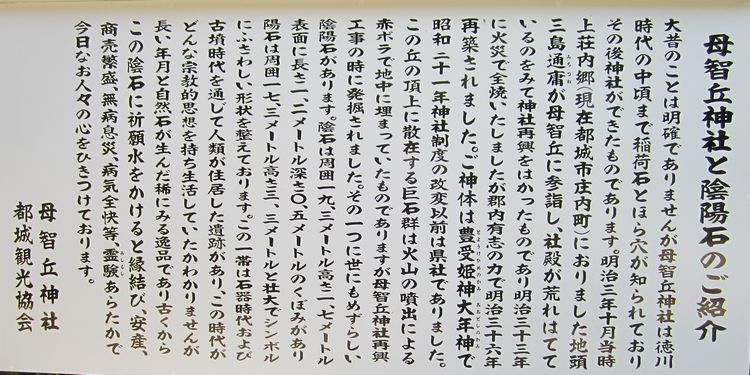 母智丘神社と陰陽石のご紹介
大昔のことは明確でありませんが母智丘神社は徳川
時代の中頃まで稲荷石とほら穴が知られており
その後神社ができたものであります。明治三年十月当時
上荘内郷(現在都城市庄内町)におりました地頭
三島通庸が母智丘に参詣し、社殿が荒れはてて
みちつね
いるのをみて神社再興をはかったものであり明治三十三年
に火災で全焼いたしましたが郡内有志の力で明治三十六年
再築されました。ご神体は豊受姫神大年神で
とようけひめのかん おおどしのかん
昭和二十一年神社制度の改変以前は県社でありました。
この丘の頂上に散在する巨石群は火山の噴出による
赤ボラで地中に埋まっていたものでありますが母智丘神社再興
工事の時に発掘されました。その一つに世にもめずらしい
陰陽石があります。陰石は周囲一九、三メートル高さ二、七メートル
表面に長さ二、二メートル深さ〇、五メートルのくぼみがあり
陽石は周囲一七、三メートル高さ三、三メートルと壮大でシンボル
にふさわしい形状を整えております。この一帯は石器時代および
古墳時代を通じて人類が住居した遺跡があり、この時代が
どんな宗教的思想を持ち生活していたかわかりませんが
長い年月と自然石が生んだ稀にみる逸品であり古くから
この陰石に祈願水をかけると縁結び、安産、
商売繁盛、無病息災、病気全快等、霊験あらたかで
今日なお人々の心をひきつけております。
母智丘神社
都城観光協会